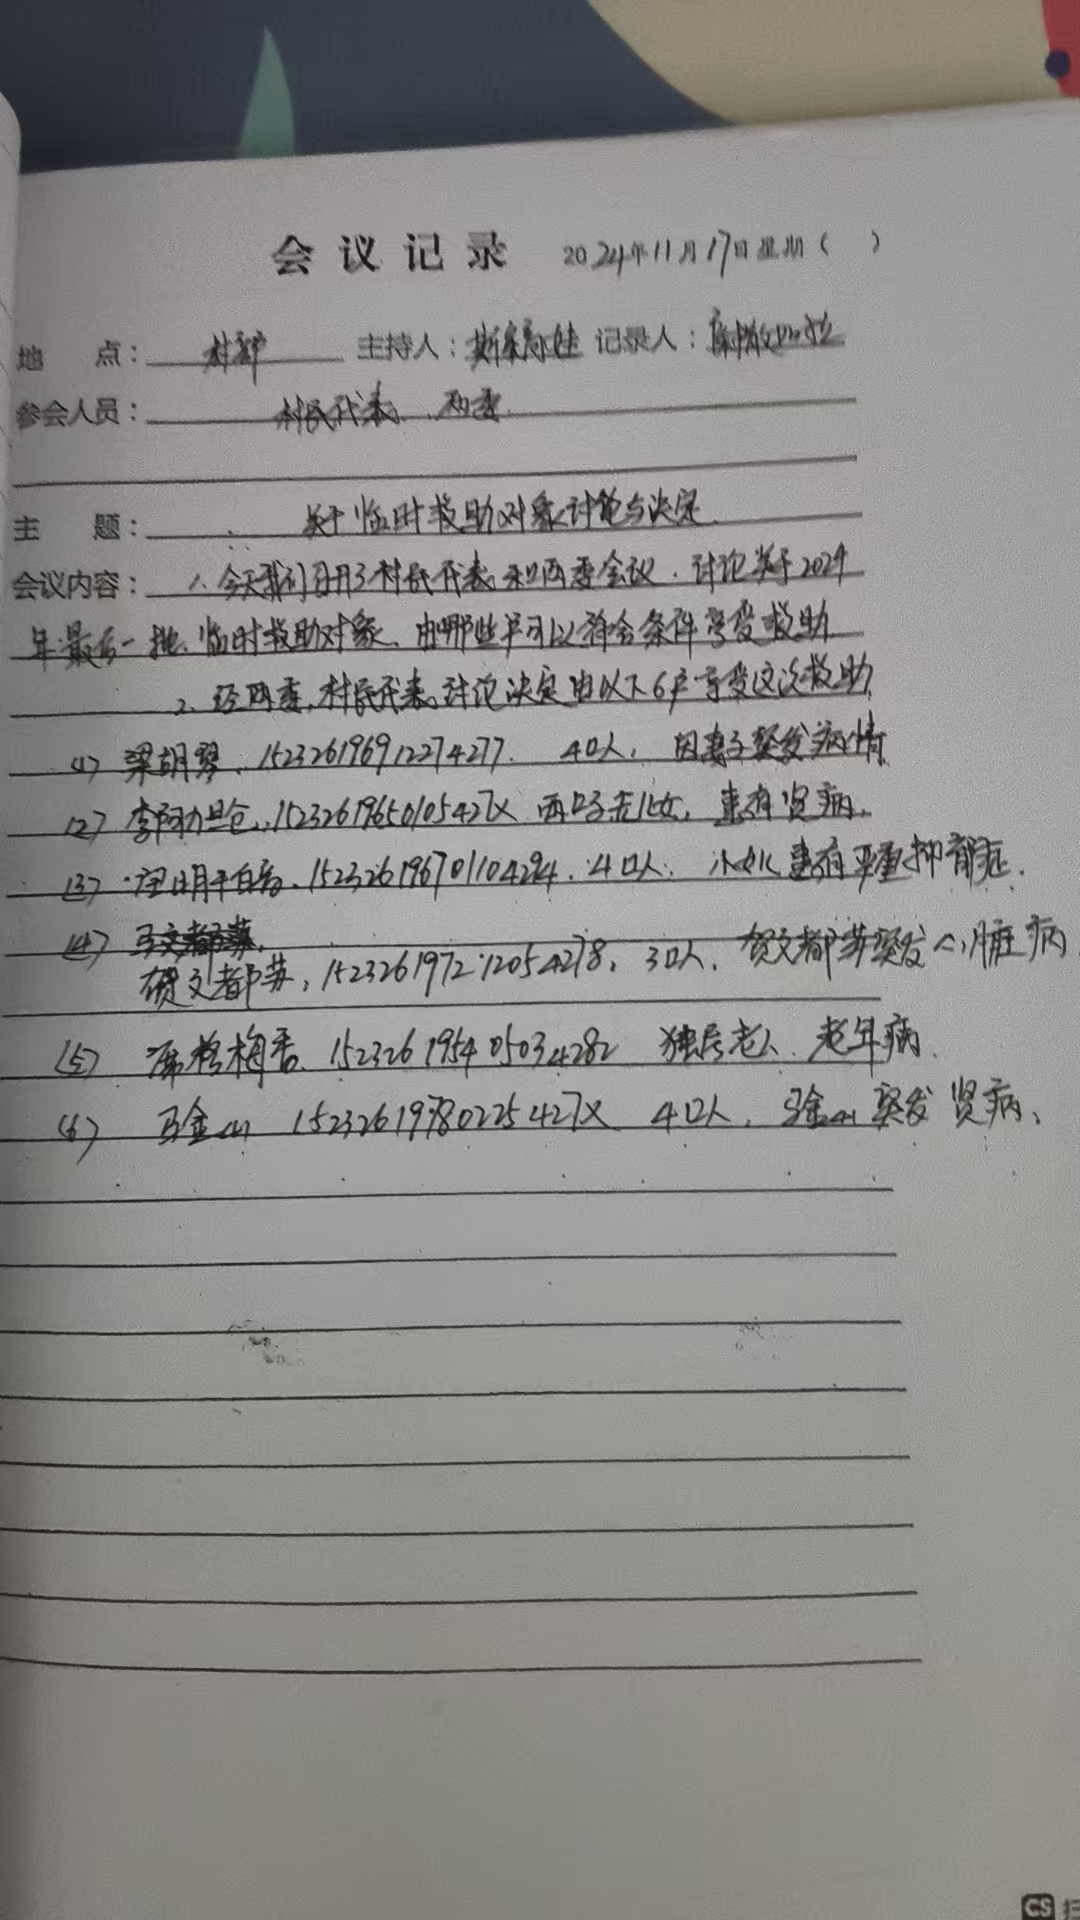 会议记录 2024年11月17日星期( )
地 点: 村部 主持人: 斯 记录人:
参会人员: 村民代表、两委
主 题: 关于临时救助对象讨论与决定
会议内容: 1、今天我们召开了村民代表和两委会议,讨论关于2024
年最后一批、临时救助对象、由哪些户可以符合条件享受救助
2、经两委,村民代表讨论决定由以下6户享受这次救助
(1) 梁胡琴、152326196912274277. 4口人, 因妻子突发病情
(2) 李阿力旦仓, 15232619650105427X 两口子无儿女, 患有肾病.
(3) 明干白音、152326196701104294. 4口人. 小女儿患有严重抑郁症.
(4)
贺文都苏, 152326197212054278, 3口人, 贺文都苏突发心脏病
(5) 席格梅香、152326195405034282 独居老人、老年病.
(6) 金山 15232619780225427X 4口人, 金山突发肾病、
CS 扫